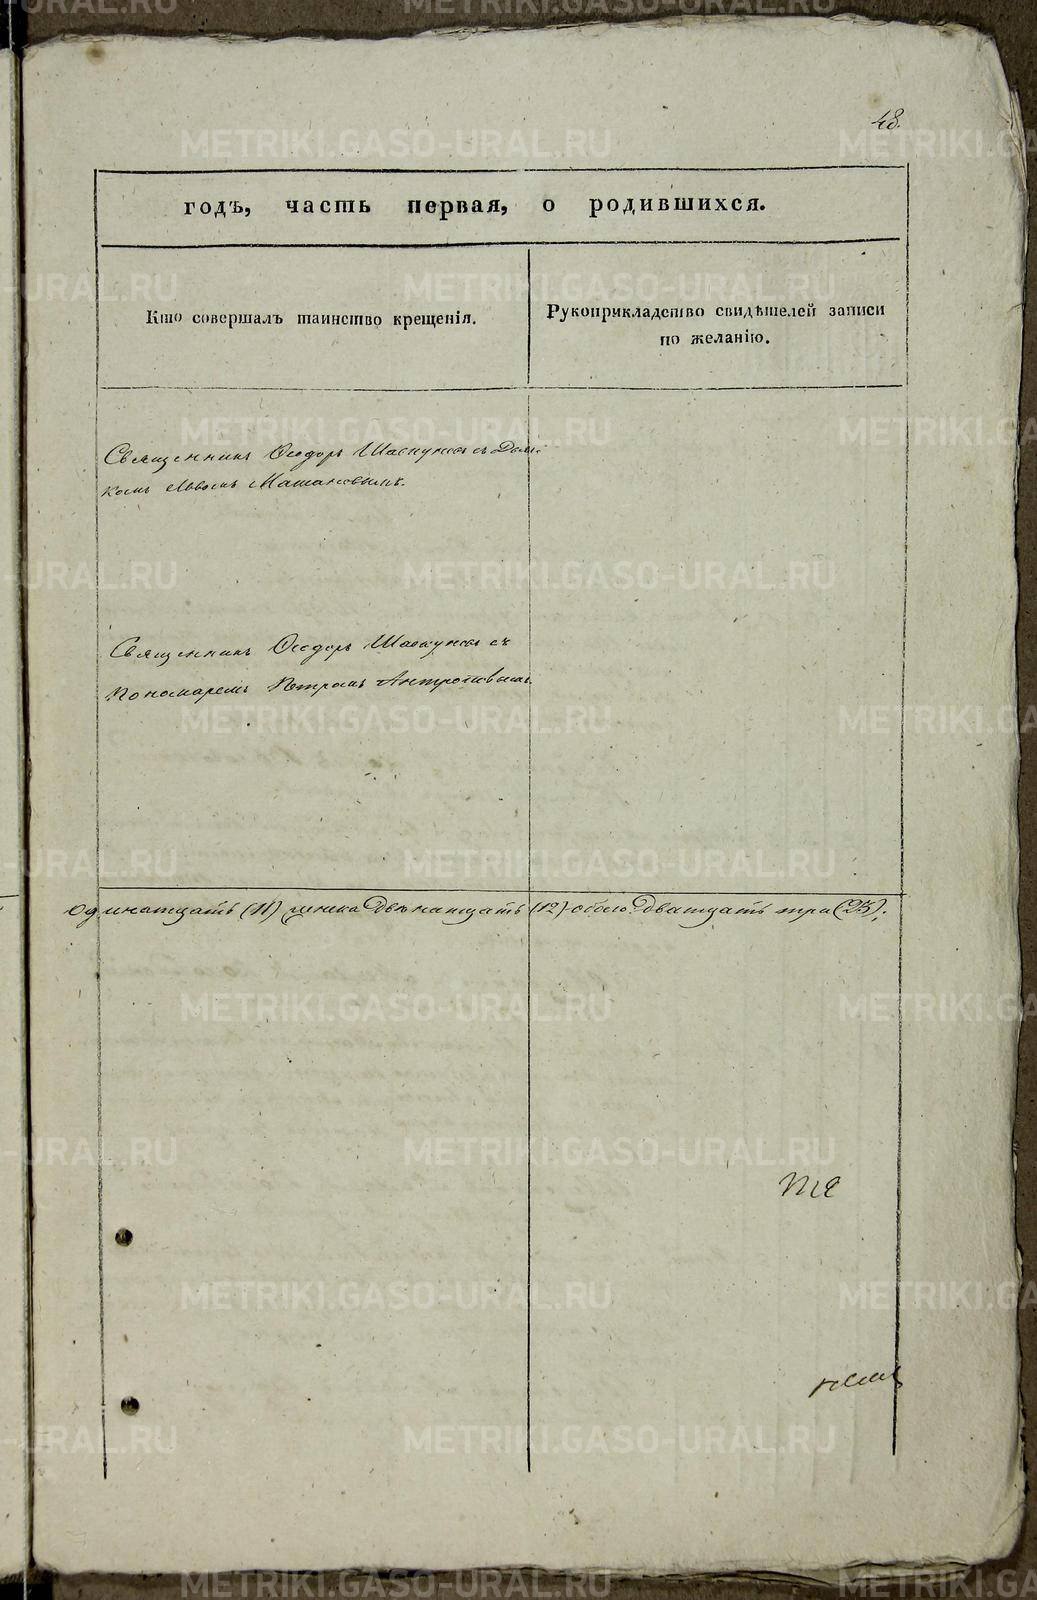 48.
годъ, часть первая, о родившихся.
Кто совершалъ таинство крещенія.
Рукоприкладство свидѣтелей записи
по желанію.
Священникъ Ѳеодоръ съ Дьяч-
комъ Львомъ
Священникъ Ѳеодоръ съ
Пономаремъ Петромъ Антроповымъ.
одинатцать (11) женска двѣнатцать (12) обоего дватцать три (23).
METRIKI.GASO-URAL.RU